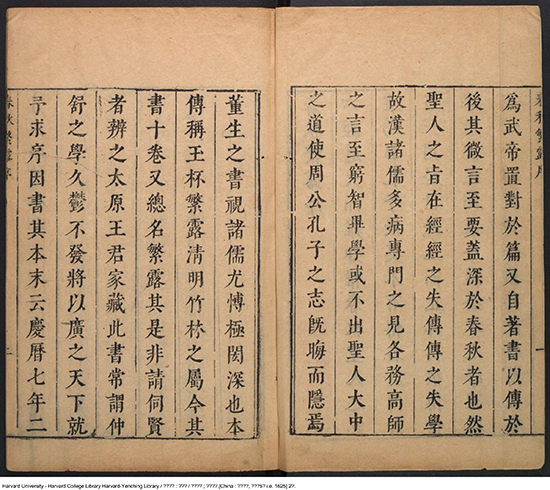 春秋繁露序
為武帝置對於篇又自著書以傳於
後其微言至要蓋深於春秋者也然
聖人之㫖在經經之失傳傳之失學
故漢諸儒多病專門之見各務高師
之言至窮智畢學或不出聖人大中
之道使周公孔子之志旣晦而隱焉
董生之書視諸儒尤愽極閎深也本
傳稱王杯繁露清明竹林之屬今其
書十卷又總名繁露其是非請伺賢
者辨之太原王君家藏此書常謂仲
舒之學久鬱不發將以廣之天下就
予求序因書其本末云慶曆七年二
春秋繁露序
Harvard University - Harvard College Library Harvard-Yenching Library / ???? : ??? / ???? ; ???? [China : ????, ???5? i.e. 1625] 2?.